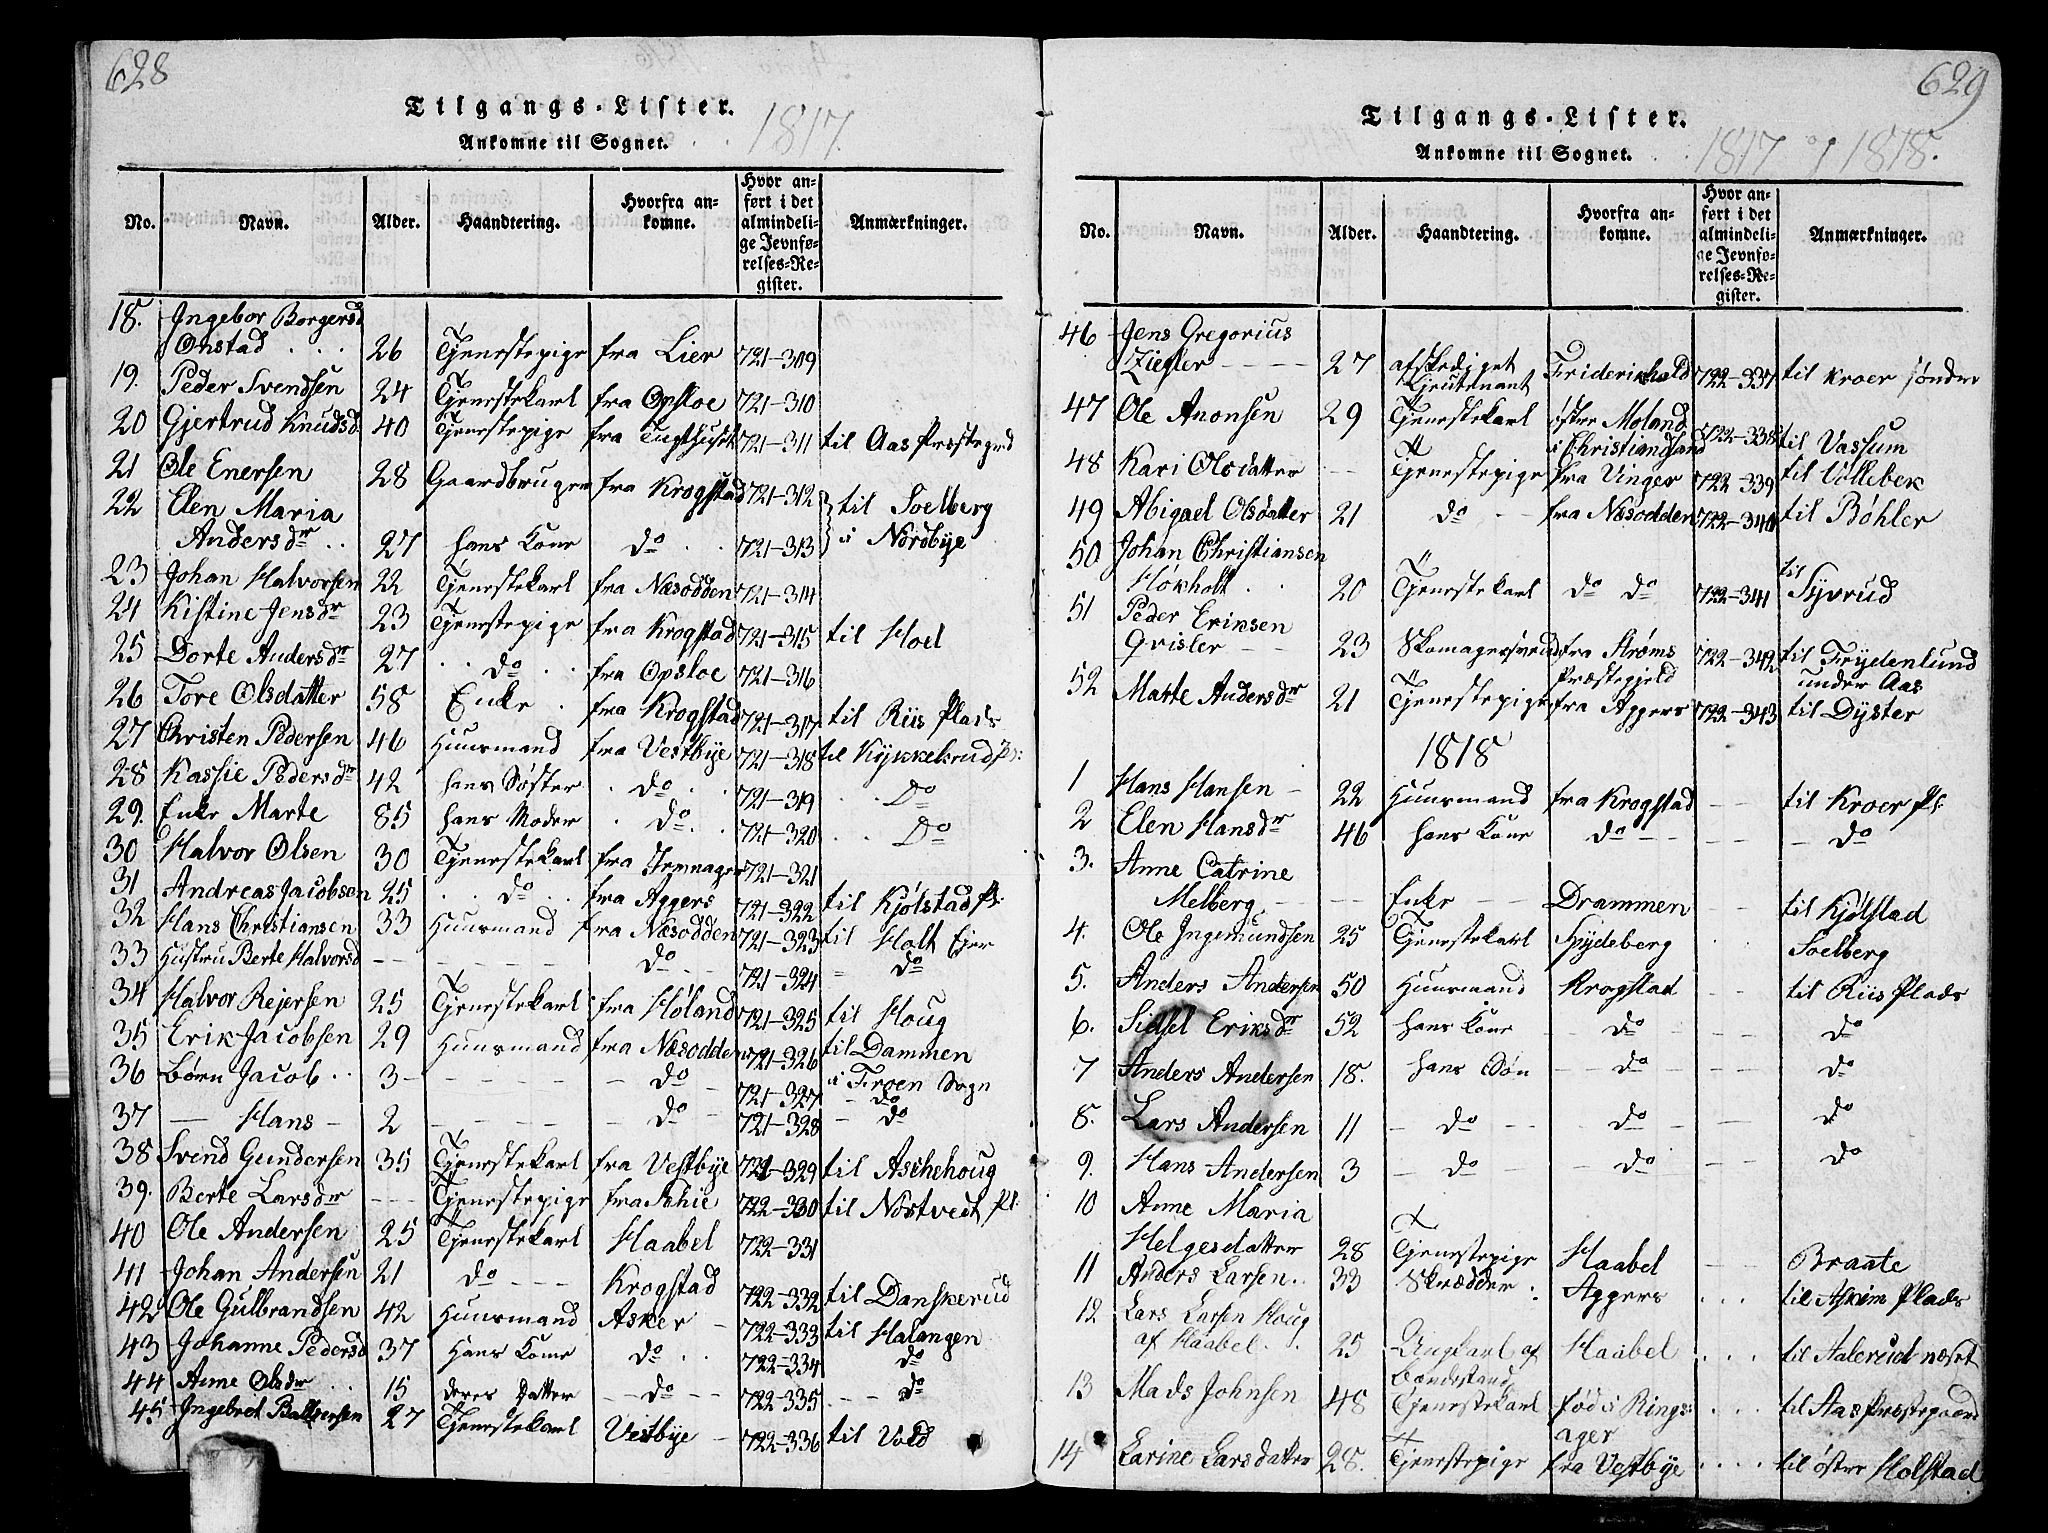 628
Tilgangs-Lister.
Ankomne til Sognet. 1817.
No. Navn. Alder. Haandtering. Hvorfra ankomne. Hvor anført i det almindelige Jevnførelses-Register. Anmærkninger.
18. Ingebor Borgersd
Onstad . . . 26 Tjenestepige fra Lier 721-309
19. Peder Svendsen 24 Tjenestekarl fra Opsloe 721-310
20 Gjertrud Knudsd. 40 Tjenestepige fra Tugthuset 721-311 til Aas Præstegrd
21 Ole Enersen 28 Gaardbruger fra Krogstad 721-312 til Soelberg
22 Elen Maria
Andersdr . . 27 hans Kone do . . 721-313 i Nordbye
23 Johan Halvorsen 22 Tjenestekarl fra Næsodden 721-314
24 Kistine Jensdr 23 Tjenestepige fra Krogstad 721-315 til Hoel
25 Dorte Andersdr 27 . . do . . fra Opsloe 721-316
26 Tore Olsdatter 58 Enke . fra Krogstad 721-317 til Riis Plads
27 Christen Pedersen 46 Huusmand fra Vestbye 721-318 til Kykkelsrud Pl:
28 Kassie Pedersdr 42 hans Søster . do . . 721-319 . . Do
29. Enke Marte 85 hans Moder . do . . 721-320 . . Do
30 Halvor Olsen 30 Tjenestekarl fra 721-321
31 Andreas Jacobsen 25 . . do . . fra Aggers 721-322 til Kjølstad Pl.
32 Hans Christiansen 33 Huusmand fra Næsodden 721-323 til Holt Ejer
33 Hustru Berte Halvorsd - - - do - - 721-324 - do
34 Halvor Rejersen 25 Tjenestekarl fra Høland 721-325 til Houg
35 Erik Jacobsen 29 Huusmand fra Næsodden 721-326 til Dammen
36 Børn Jacob . . 3 - - - - do - 721-327 i Froen Sogn
37 - Hans - 2 - - - - do - 721-328 - do
38 Svend Gundersen 35 Tjenestekarl fra Vestbye 721-329 til Aschehoug
39. Berte Larsdr - - - Tjenestepige fra Schie 722-330 til Nordtvedt Pl.
40 Ole Andersen 25 Tjenestekarl Haabel 722-331
41 Johan Andersen 21 do - - - Krogstad 722-332 til Danskerud
42 Ole Gulbrandsen 42 Huusmand Asker - 722-333 til Halangen
43 Johanne Pedersd 37 Hans Kone do . . 722-334 do
44 Anne Olsdr . . . 15 deres Datter - - do - - 722-335 . - - do
45 Ingebret Baltzersen 27 Tjenestekarl Vestbye - 722-336 til Vold
629
Tilgangs-Lister.
Ankomne til Sognet. 1817 og 1818.
No. Navn. Alder. Haandtering. Hvorfra ankomne. Hvor anført i det almindelige Jevnførelses-Register. Anmærkninger.
46 Jens Gregorius
Ziegler - - - - 27 afskediget Lieutenant Friderikhald 722-337 til Kroer søndre
47 Ole Anonsen 29 Tjenestekarl øster Moland i Christiansand 722-338 til Vassum
48 Kari Olsdatter - - Tjenestepige fra Vinger 722-339 til Vollebek
49 Abigael Olsdatter 21 do - - fra Næsodden 722-340 til Bøhler
50 Johan Christiansen
Høkholt . . 20 Tjenestekarl do do 722-341 til Syvrud
51 Peder Eriksen
Qvisler - - 23 Skomagersvend fra Strøms Præstegjeld 722-342 til Frydenlund under Aas
52 Marte Andersdr 21 Tjenestepige fra Aggers 722-343 til Dyster
1818
1 Hans Hansen - 22 Huusmand fra Krogstad - - til Kroer Pl.
2 Elen Hansdr 46 hans Kone do - - - - do
3. Anne Catrine
Melberg - - - - Enke - - Drammen - - til Kjølstad
4. Ole Ingemundsen 25 Tjenestekarl Spydeberg . Soelberg
5. Anders Andersen 50 Huusmand Krogstad - - til Riis Plads
6. Sidsel Eriksdr 52 hans Kone - do - - - do
7 Anders Andersen 18. hans Søn - - do - - - do
8. Lars Andersen 11 - do - - do - - - do
9. Hans Andersen 3 - do - - do - - - do
10 Anne Maria
Helgesdatter 28 Tjenestepige Haabel - - Braate
11 Anders Larsen . . 33 Skrædder . Aggers . . . til Askim Plads
12 Lars Larsen Houg
af Haabel . . 25 Ungkarl af Bondestand Haabel . . . til Aalerud næset
13 Mads Johnsen 48 Tjenestekarl fød i Ringsager . . . til Aas Præstegaard
14 Karine Larsdatter 28. Tjenestepige fra Vestbye . . . . til østre Holstad